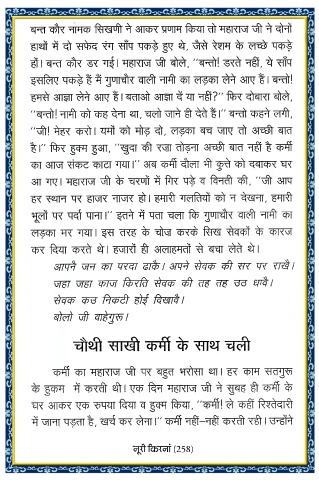 बन्त कौर नामक सिखणी ने आकर प्रणाम किया तो महाराज जी ने दोनों
हाथों में दो सफेद रंग साँप पकड़े हुए थे, जैसे रेशम के लच्छे पकड़े
हों। बन्त कौर डर गई। महाराज जी बोले, ‘‘बन्तो! डरते नहीं, ये साँप
इसलिए पकड़े हैं मैं गुणाचौर वाली नामी का लड़का लेने आए हैं। बन्तो!
हमसे आज्ञा लेने आए हैं। बताओ आज्ञा दें या नहीं?’’ फिर दोबारा बोले,
‘‘बन्तो! नामी को कह देना था, चलो जाने ही देते हैं।’’ बन्तो कहने लगी,
‘‘जी! मेहर करो। यमों को मोड़ दो, लड़का बच जाए तो अच्छी बात
है।’’ फिर हुक्म हुआ, ‘‘खुदा की रज़ा तोड़ना अच्छी बात नहीं है कर्मी
का आज संकट काटा गया।’’ अब कर्मी दौला भी कुत्ते को दबाकर घर
आ गए। महाराज जी के चरणों में गिर पड़े व विनती की, ‘‘जी आप
हर स्थान पर हाजर नाजर हो। हमारी गलतियों को न देखना, हमारी
भूलों पर पर्दा पाना।’’ इतने में पता चला कि गुणाचौर वाली नामी का
लड़का मर गया। इस तरह के चोज करके सिख सेवकों के कारज
कर दिया करते थे। हजारों ही अलाहमतों से बचा लेते थे।
आपनै जन का परदा ढाकै। अपने सेवक की सर पर राखै।
जहा जहा काज किरति सेवक की तह तह उठ धावै।
सेवक कउ निकटी होई दिखावै।
बोलो जी वाहेगुरू।
चौथी साखी कर्मी के साथ चली
कर्मी का महाराज जी पर बहुत भरोसा था। हर काम सतगुरू
के हुकम में करती थी। एक दिन महाराज जी ने सुबह ही कर्मी के
घर आकर एक रुपया दिया व हुक्म किया, ‘‘कर्मी! ले कहीं रिश्तेदारी
में जाना पड़ता है, खर्च कर लेना।’’ कर्मी नहीं–नहीं करती रही। उन्होंने
नूरी किरनां (258)